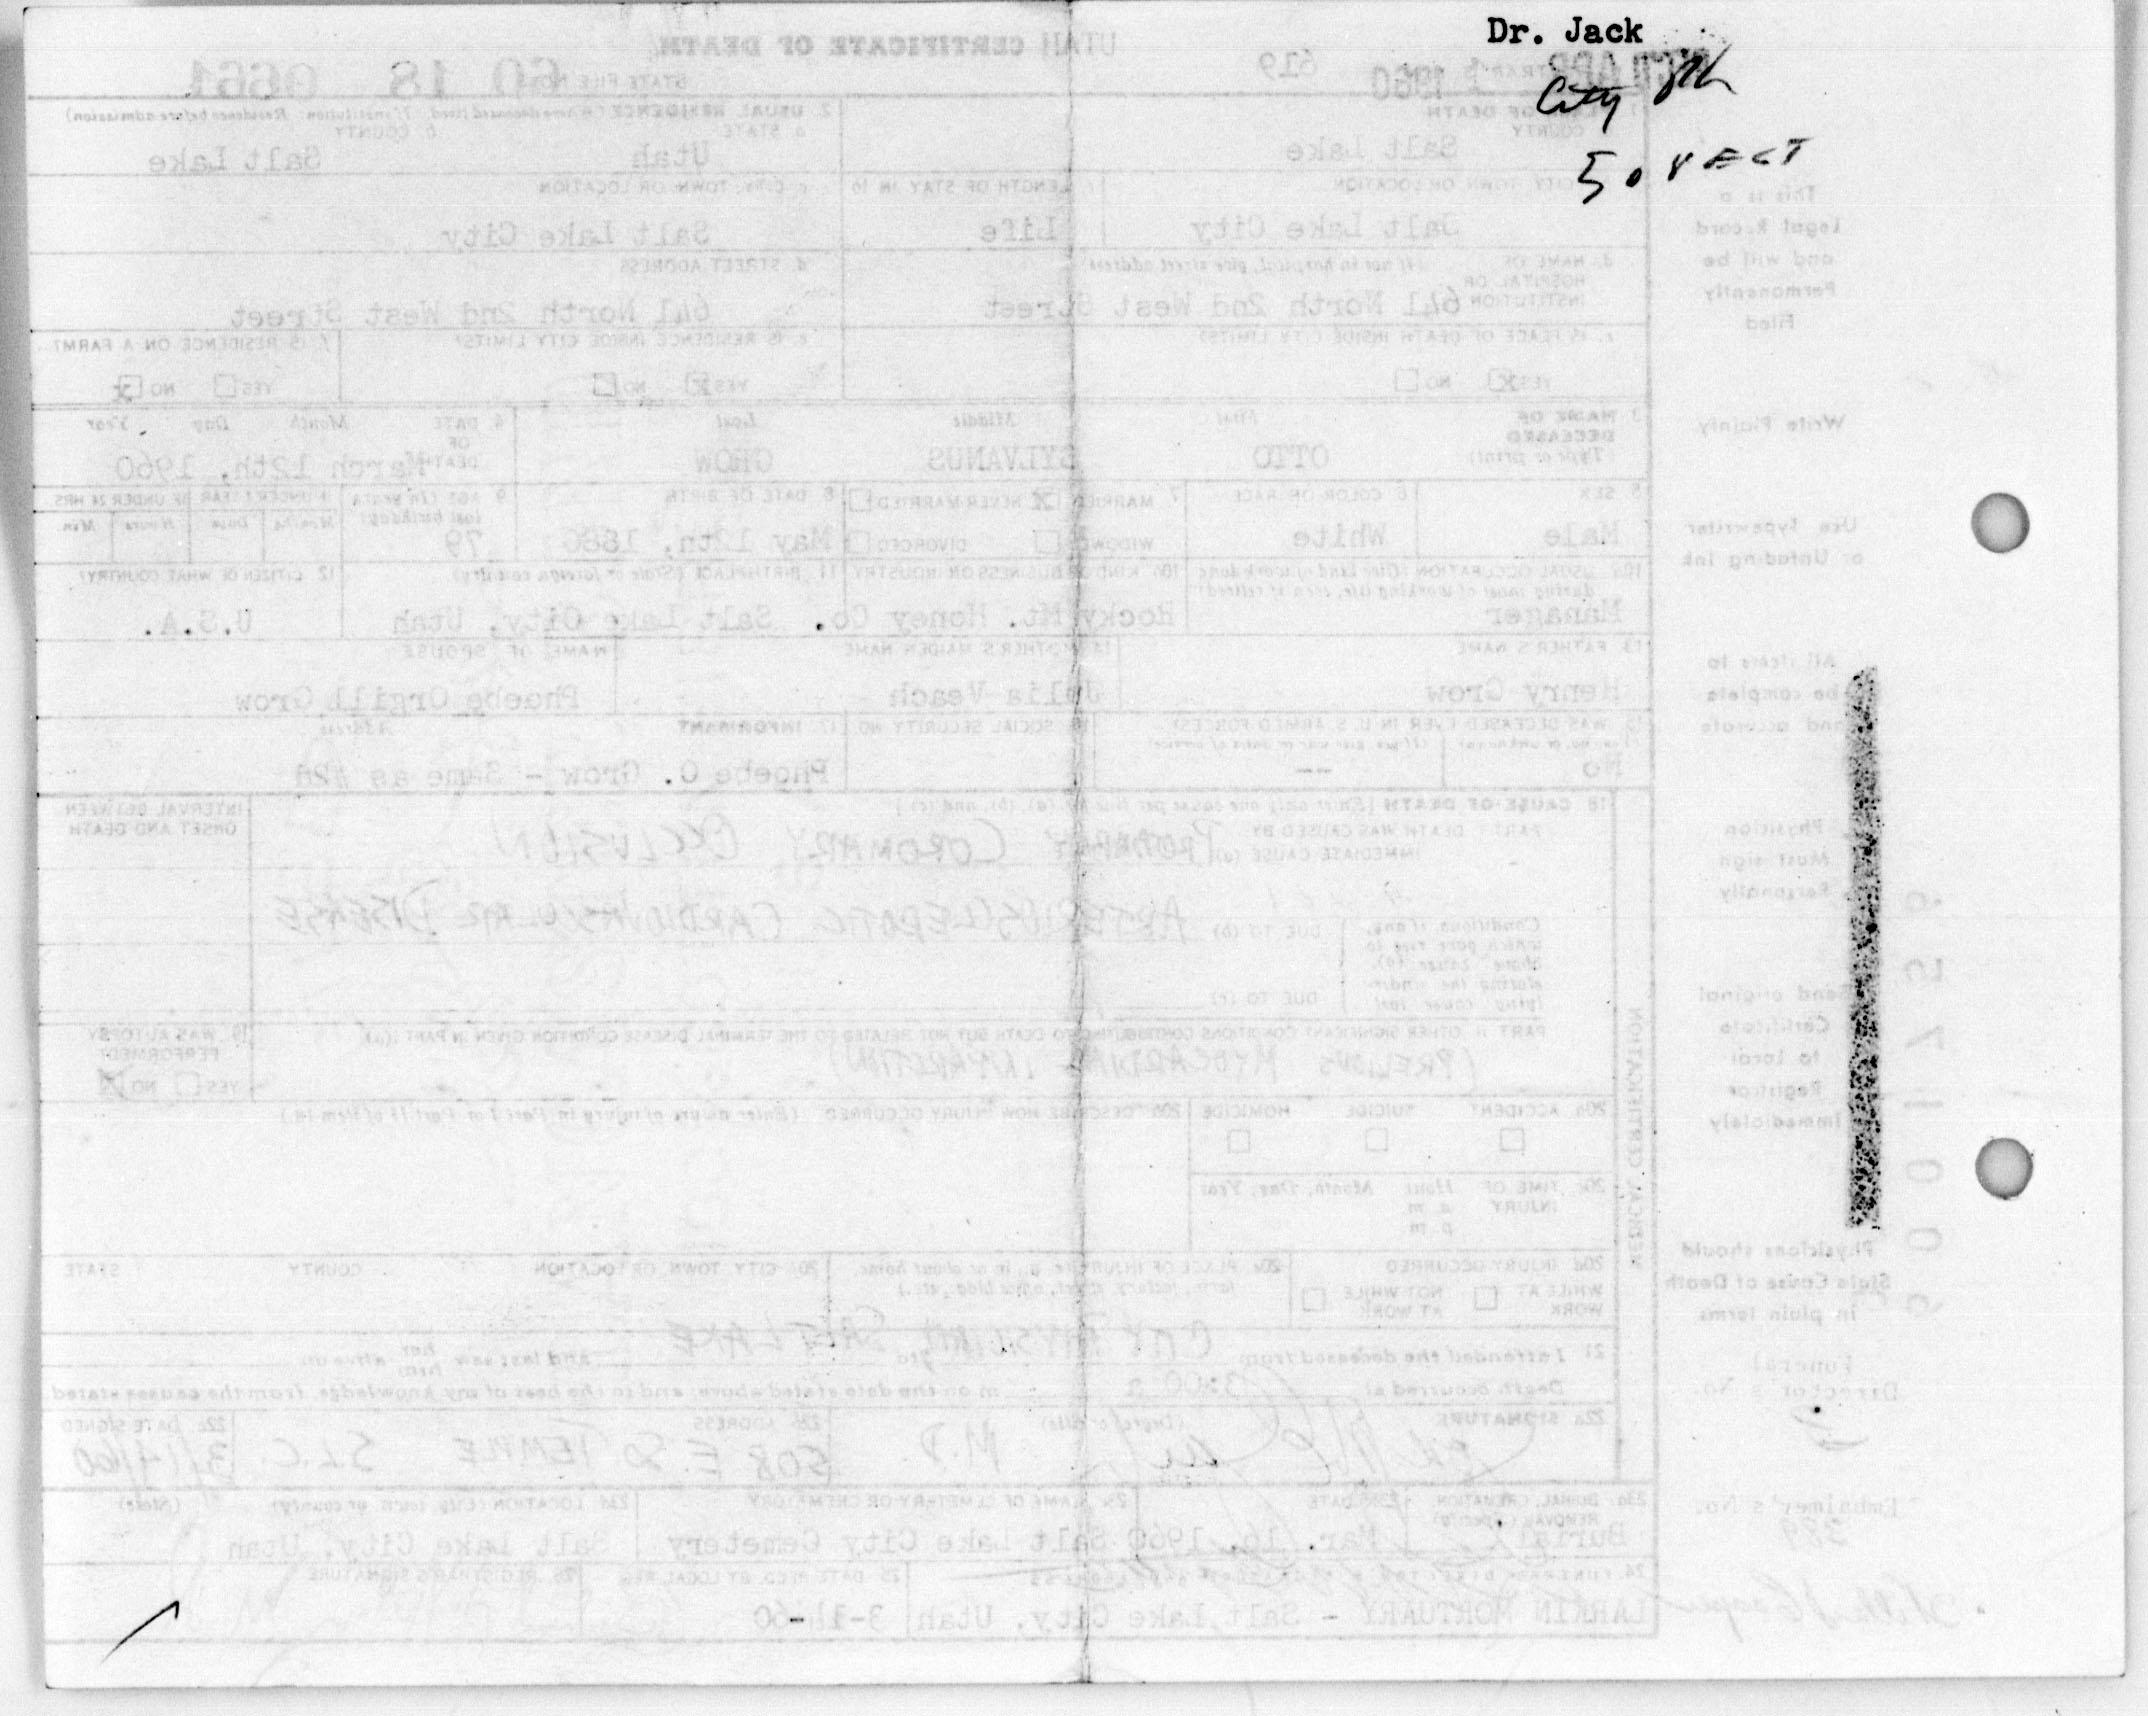 Dr. Jack
City
UTAH CERTIFICATE OF DEATH
STATE FILE NO. 60 18 0661
619
1960
PLACE OF DEATH
COUNTY
Salt Lake
2. USUAL RESIDENCE (Where deceased lived. If institution: Residence before admission)
a. STATE b. COUNTY
Utah Salt Lake
CITY, TOWN OR LOCATION
Salt Lake City
LENGTH OF STAY IN 1b
Life
c. CITY, TOWN OR LOCATION
Salt Lake City
d. NAME OF HOSPITAL OR INSTITUTION (If not in hospital, give street address)
641 North 2nd West Street
d. STREET ADDRESS
641 North 2nd West Street
e. IS PLACE OF DEATH INSIDE CITY LIMITS?
YES X NO
e. IS RESIDENCE INSIDE CITY LIMITS?
YES X NO
f. IS RESIDENCE ON A FARM?
YES NO X
3. NAME OF DECEASED (Type or print)
First Middle Last
OTTO SYLVANUS GROW
4. DATE OF DEATH Month Day Year
March 12th, 1960
5. SEX
Male
6. COLOR OR RACE
White
7. MARRIED X NEVER MARRIED
WIDOWED DIVORCED
8. DATE OF BIRTH
May 12th, 1880
9. AGE (In years last birthday)
79
IF UNDER 1 YEAR IF UNDER 24 HRS.
Months Days Hours Min.
10a. USUAL OCCUPATION (Give kind of work done during most of working life, even if retired)
Manager
10b. KIND OF BUSINESS OR INDUSTRY
Rocky Mt. Honey Co.
11. BIRTHPLACE (State or foreign country)
Salt Lake City, Utah
12. CITIZEN OF WHAT COUNTRY?
U.S.A.
13. FATHER'S NAME
Henry Grow
14. MOTHER'S MAIDEN NAME
Julia Veach
NAME OF SPOUSE
Phoebe Orgill Grow
15. WAS DECEASED EVER IN U.S. ARMED FORCES?
(Yes, no, or unknown) (If yes, give war or dates of service)
No --
16. SOCIAL SECURITY NO.
17. INFORMANT Address
Phoebe O. Grow - Same as #2d
18. CAUSE OF DEATH [Enter only one cause per line for (a), (b), and (c).]
PART I. DEATH WAS CAUSED BY
IMMEDIATE CAUSE (a) PROBABLY CORONARY OCCLUSION
INTERVAL BETWEEN ONSET AND DEATH
Conditions, if any, which gave rise to above cause (a), stating the underlying cause last
DUE TO (b) ARTERIOSCLEROTIC CARDIOVASCULAR DISEASE
DUE TO (c)
PART II. OTHER SIGNIFICANT CONDITIONS CONTRIBUTING TO DEATH BUT NOT RELATED TO THE TERMINAL DISEASE CONDITION GIVEN IN PART I(a)
(PREVIOUS MYOCARDIAL INFARCTION)
19. WAS AUTOPSY PERFORMED?
YES NO X
MEDICAL CERTIFICATION
20a. ACCIDENT SUICIDE HOMICIDE
20b. DESCRIBE HOW INJURY OCCURRED (Enter nature of injury in Part I or Part II of item 18.)
20c. TIME OF INJURY Hour Month, Day, Year
a. m.
p. m.
20d. INJURY OCCURRED
WHILE AT WORK NOT WHILE AT WORK
20e. PLACE OF INJURY (e. g., in or about home, farm, factory, street, office bldg., etc.)
20f. CITY, TOWN, OR LOCATION COUNTY STATE
CITY PHYSICIAN, SALT LAKE
21. I attended the deceased from to and last saw her him alive on
Death occurred at 3:00 a m on the date stated above; and to the best of my knowledge, from the causes stated.
22a. SIGNATURE (Degree or title)
M.D.
22b. ADDRESS
508 E. SO. TEMPLE S.L.C.
22c. DATE SIGNED
3/14/60
23a. BURIAL, CREMATION, REMOVAL (Specify)
Burial
23b. DATE
Mar. 16, 1960
23c. NAME OF CEMETERY OR CREMATORY
Salt Lake City Cemetery
23d. LOCATION (City, town, or county) (State)
Salt Lake City, Utah
24. FUNERAL DIRECTOR'S
LARKIN MORTUARY - Salt Lake City, Utah
25. DATE REC'D. BY LOCAL REG.
3-14-60
26. REGISTRAR'S SIGNATURE
This is a
Legal Record
and will be
Permanently
Filed
Write Plainly
Use Typewriter
or Unfading Ink
All items to
be complete
and accurate
Physician
Must sign
Personally
Send original
Certificate
to Local
Registrar
Immediately
Physicians should
State Cause of Death
in plain terms
Funeral
Director's No.
Embalmer's No.
389